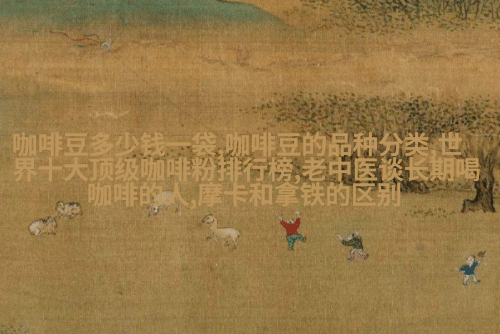 咖啡豆多少钱一袋,咖啡豆的品种分类,世
界十大顶级咖啡粉排行榜,老中医谈长期喝
咖啡的人,摩卡和拿铁的区别